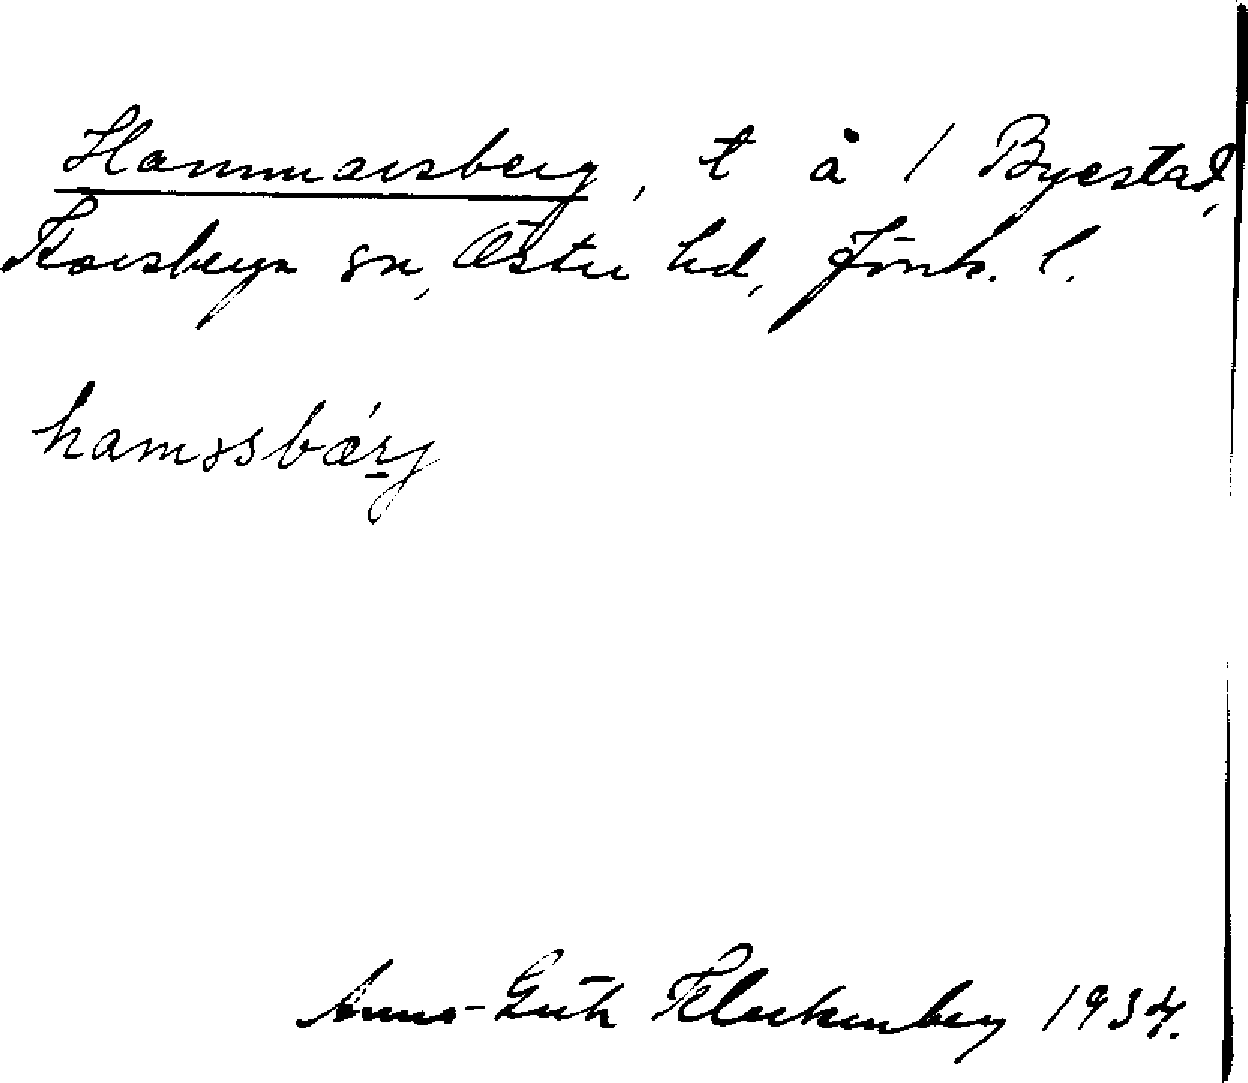 Hammarsberg, t å 1 Byestad,
Korsberga sn, Östra hd, Jönk. l.
hamasbærj
Anna-Grith Fleckenberg 1934.